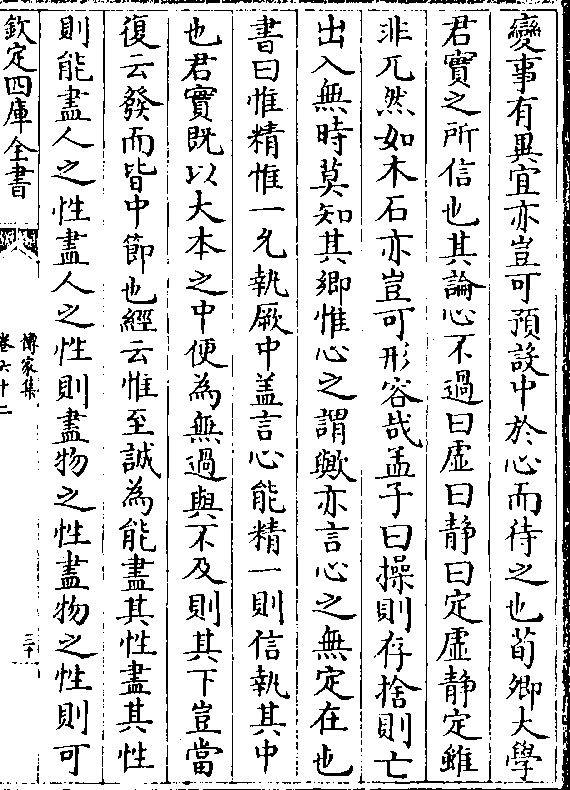 變事有異宜亦豈可預設中於心而待之也荀卿大學
君實之所信也其論心不過曰虛曰静曰定虛静定雖
非兀然如木石亦豈可形容哉孟子曰操則存捨則亡
出入無時莫知其卿惟心之謂歟亦言心之無定在也
書曰惟精惟一允執厥中盖言心能精一則信執其中
也君實既以大本之中便為無過與不及則其下豈當
復云發而皆中節也經云惟至誠為能盡其性盡其性
則能盡人之性盡人之性則盡物之性盡物之性則可
欽定四庫全書
傳家集
卷六十二
三十